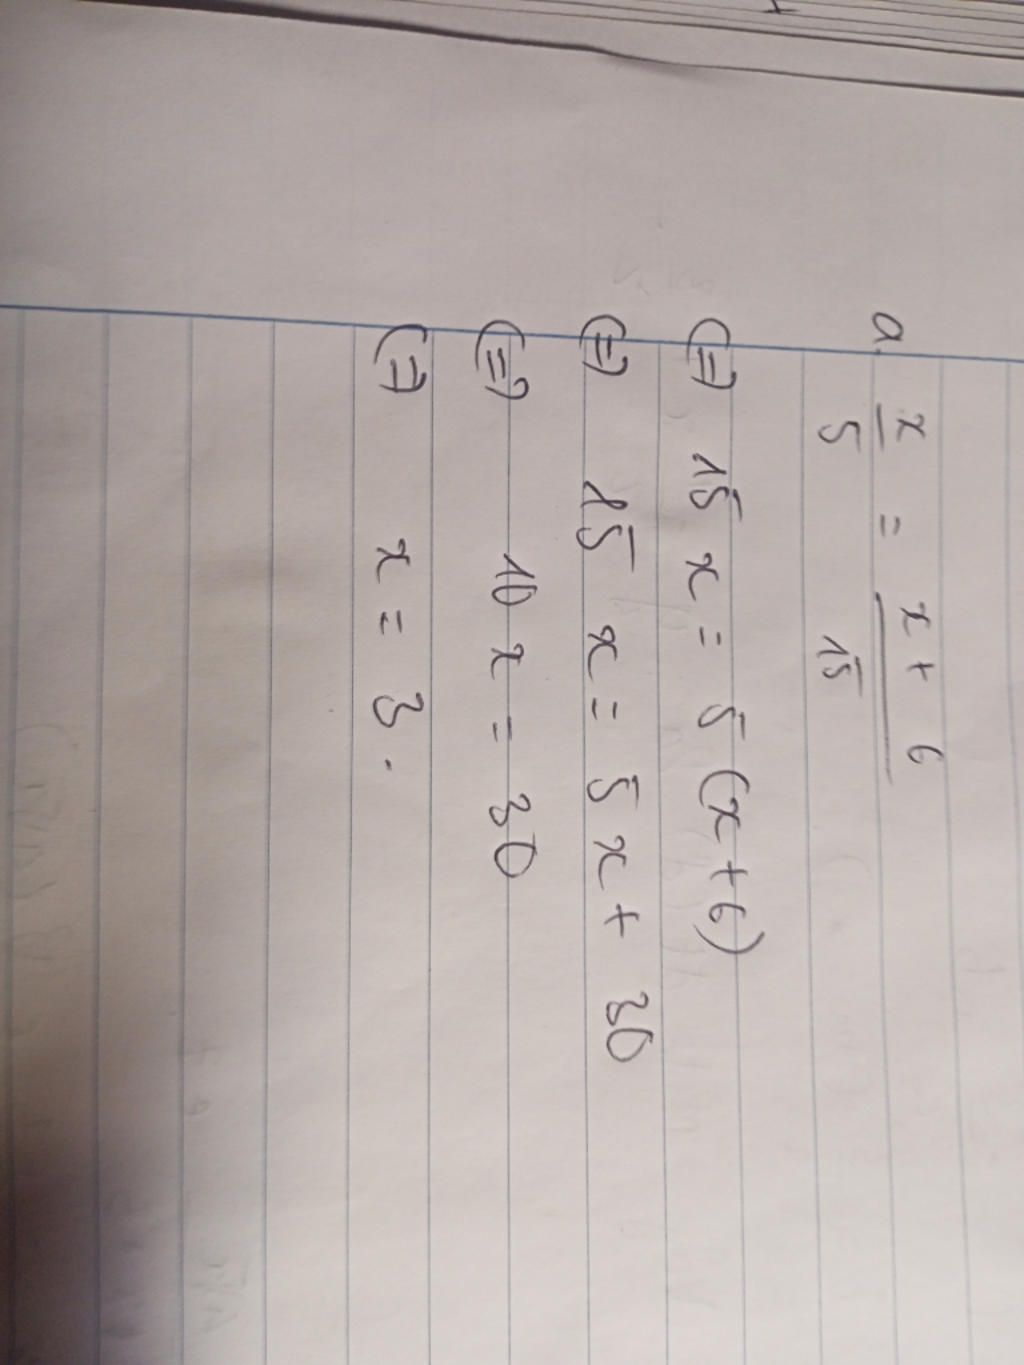 a. x/5 = x + 6/15
(=) 15 x = 5 (x + 6)
(=) 15 x = 5 x + 30
(=) 10 x = 30
(=) x = 3.